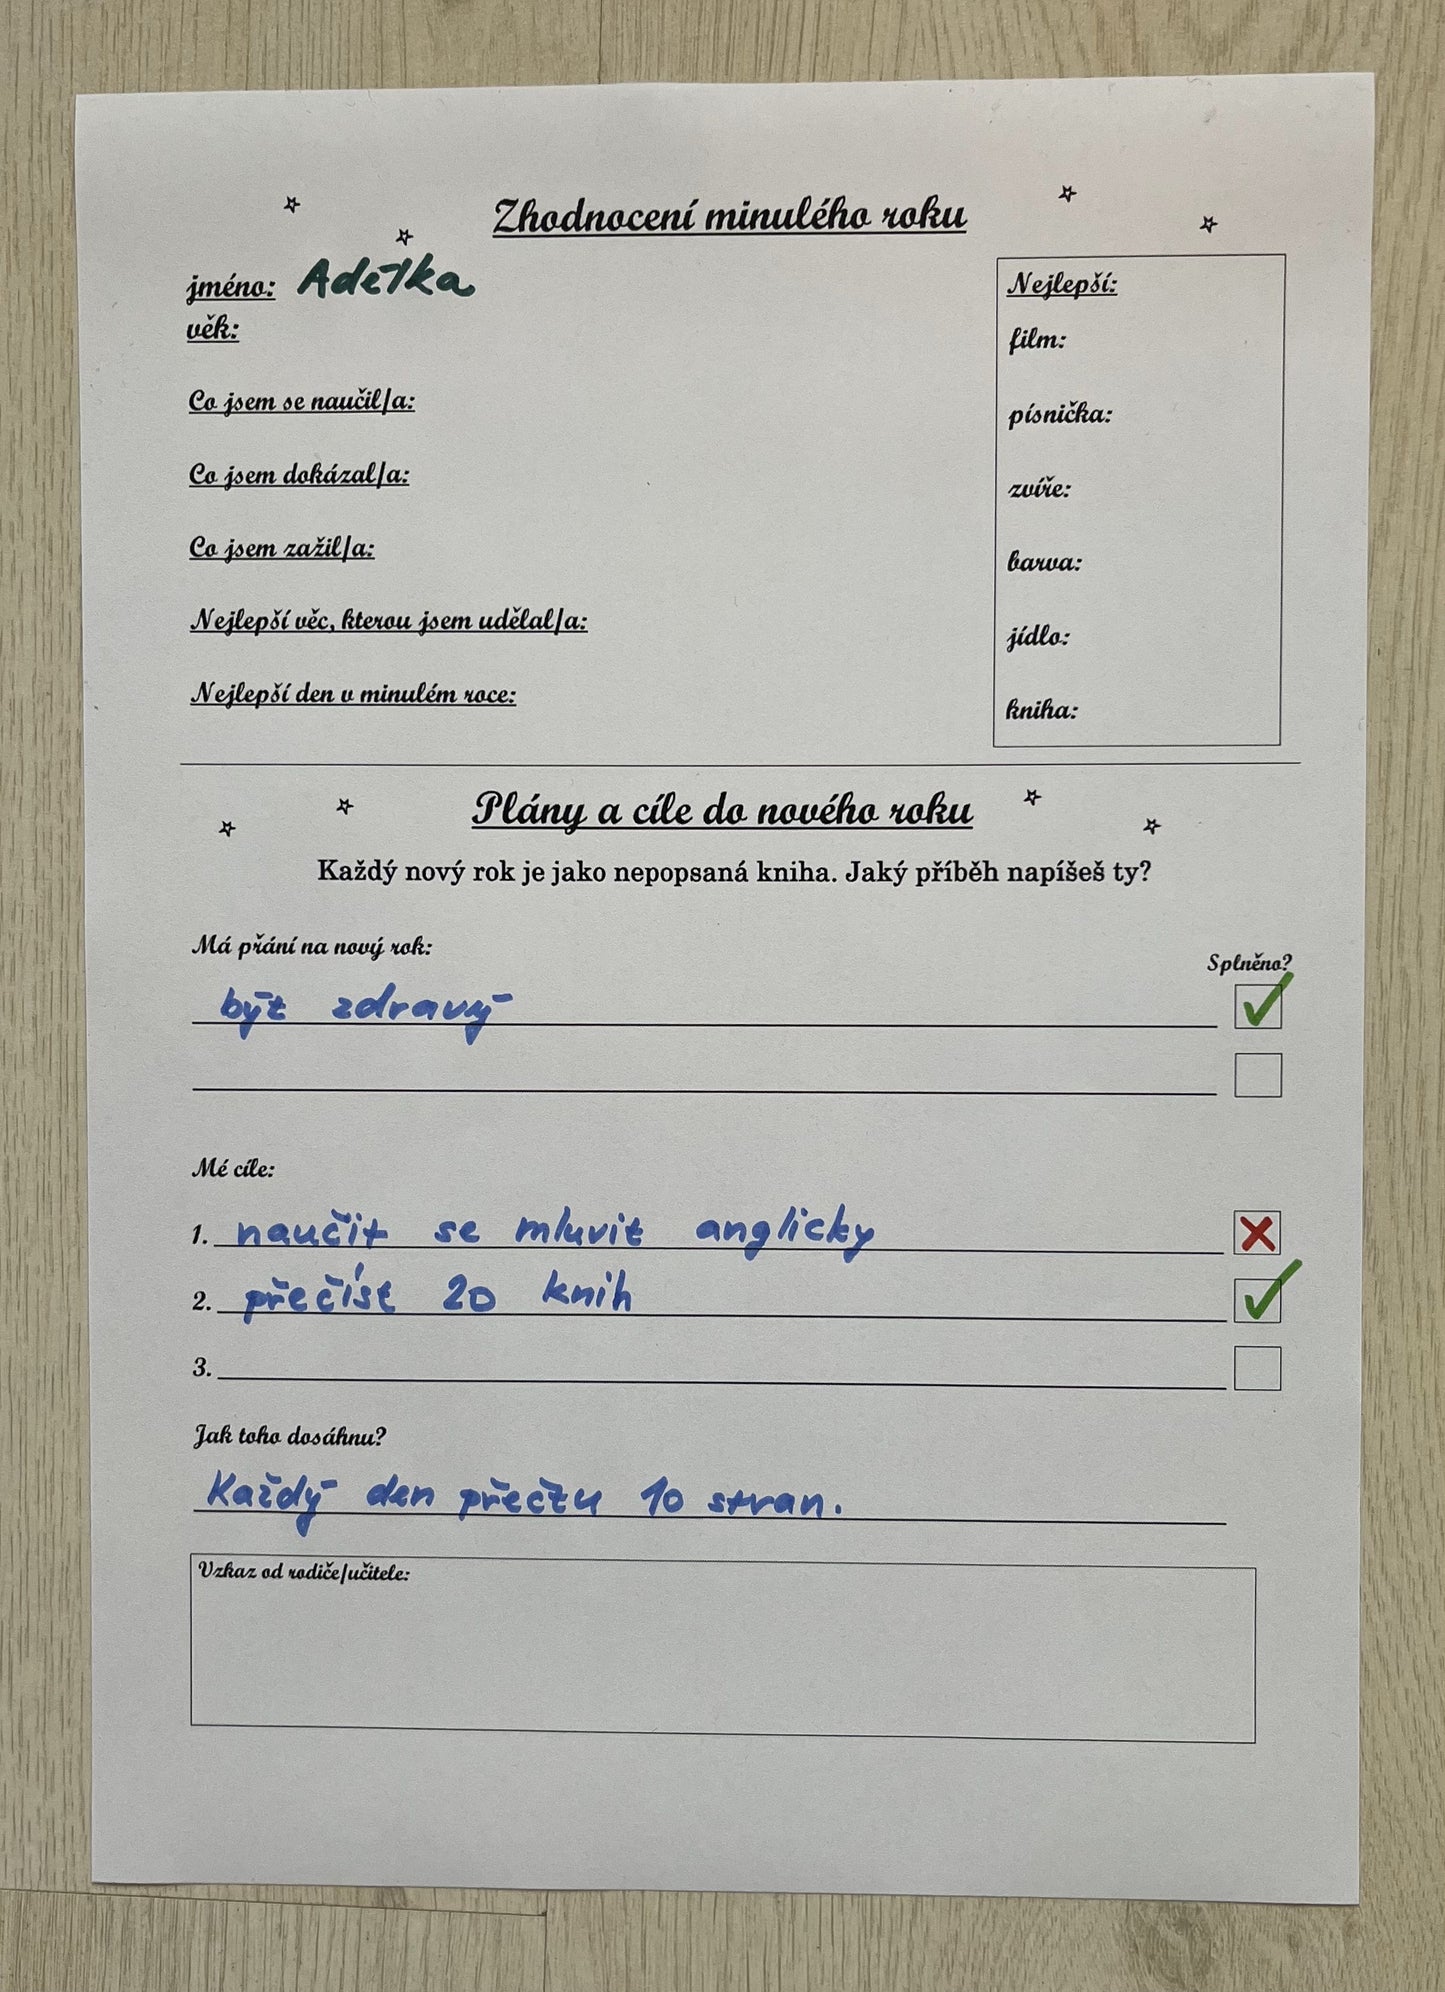 Zhodnocení minulého roku
jméno: Adélka
věk:
Co jsem se naučil/a:
Co jsem dokázal/a:
Co jsem zažil/a:
Nejlepší věc, kterou jsem udělal/a:
Nejlepší den v minulém roce:
Nejlepší:
film:
písnička:
zvíře:
barva:
jídlo:
kniha:
Plány a cíle do nového roku
Každý nový rok je jako nepopsaná kniha. Jaký příběh napíšeš ty?
Má přání na nový rok:
Splněno?
být zdravý
Mé cíle:
1. naučit se mluvit anglicky
2. přečíst 20 knih
3.
Jak toho dosáhnu?
Každý den přečtu 10 stran.
Vzkaz od rodiče/učitele: